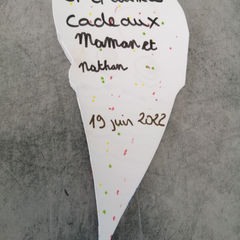 cadeaux
Maman et
Nathan
19 juin 2022